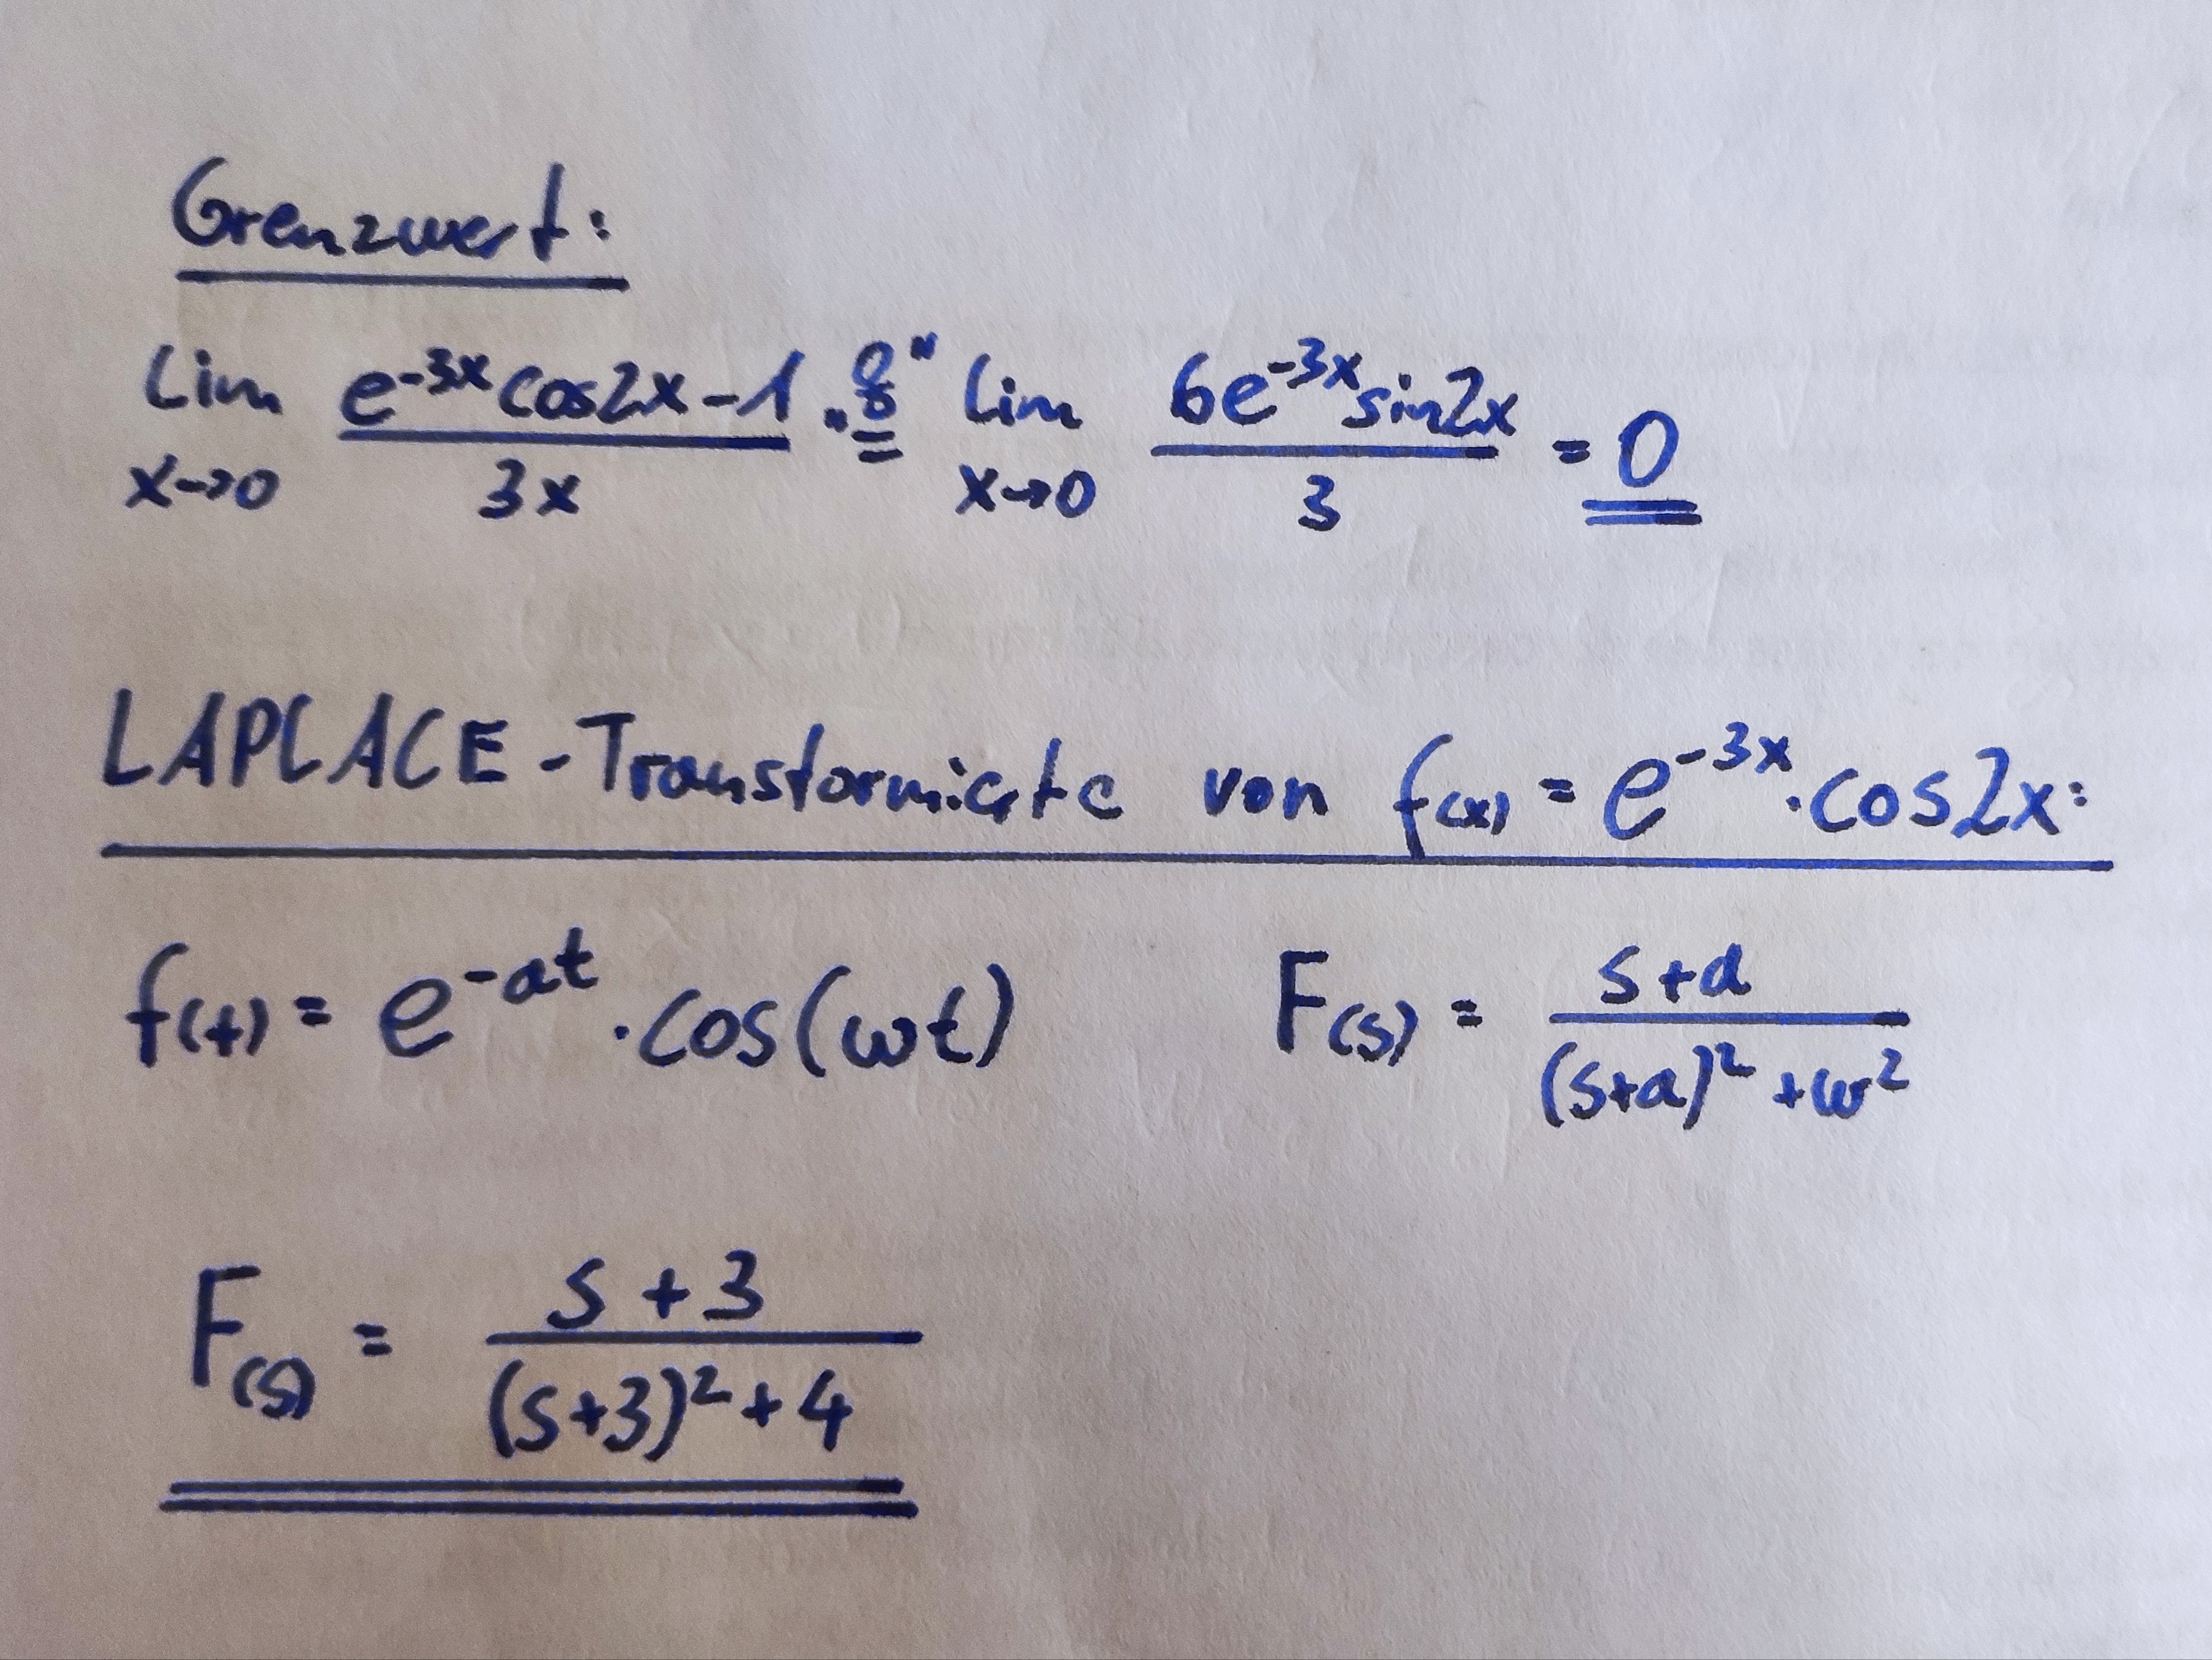 Grenzwert:
lim x→0 (e^-3x cos2x-1)/(3x) "0/0" = lim x→0 (6e^-3x sin2x)/3 = 0
LAPLACE-Transformierte von f(x) = e^-3x · cos2x:
f(t) = e^-at · cos(ωt) F(s) = (s+a)/((s+a)²+ω²)
F(s) = (s+3)/((s+3)²+4)